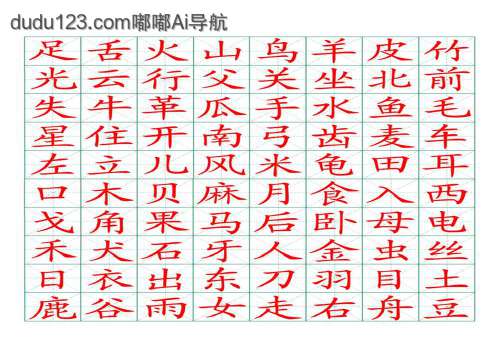 dudu123.com嘟嘟Ai导航
足舌火山鸟羊皮竹
光云行父关坐北前
失牛革瓜手水鱼毛
星住开南弓齿麦车
左立儿风米龟田耳
口木贝麻月食入西
戈角果马后卧母电
禾犬石牙人金虫丝
日衣出东刀羽目土
鹿谷雨女走右舟豆